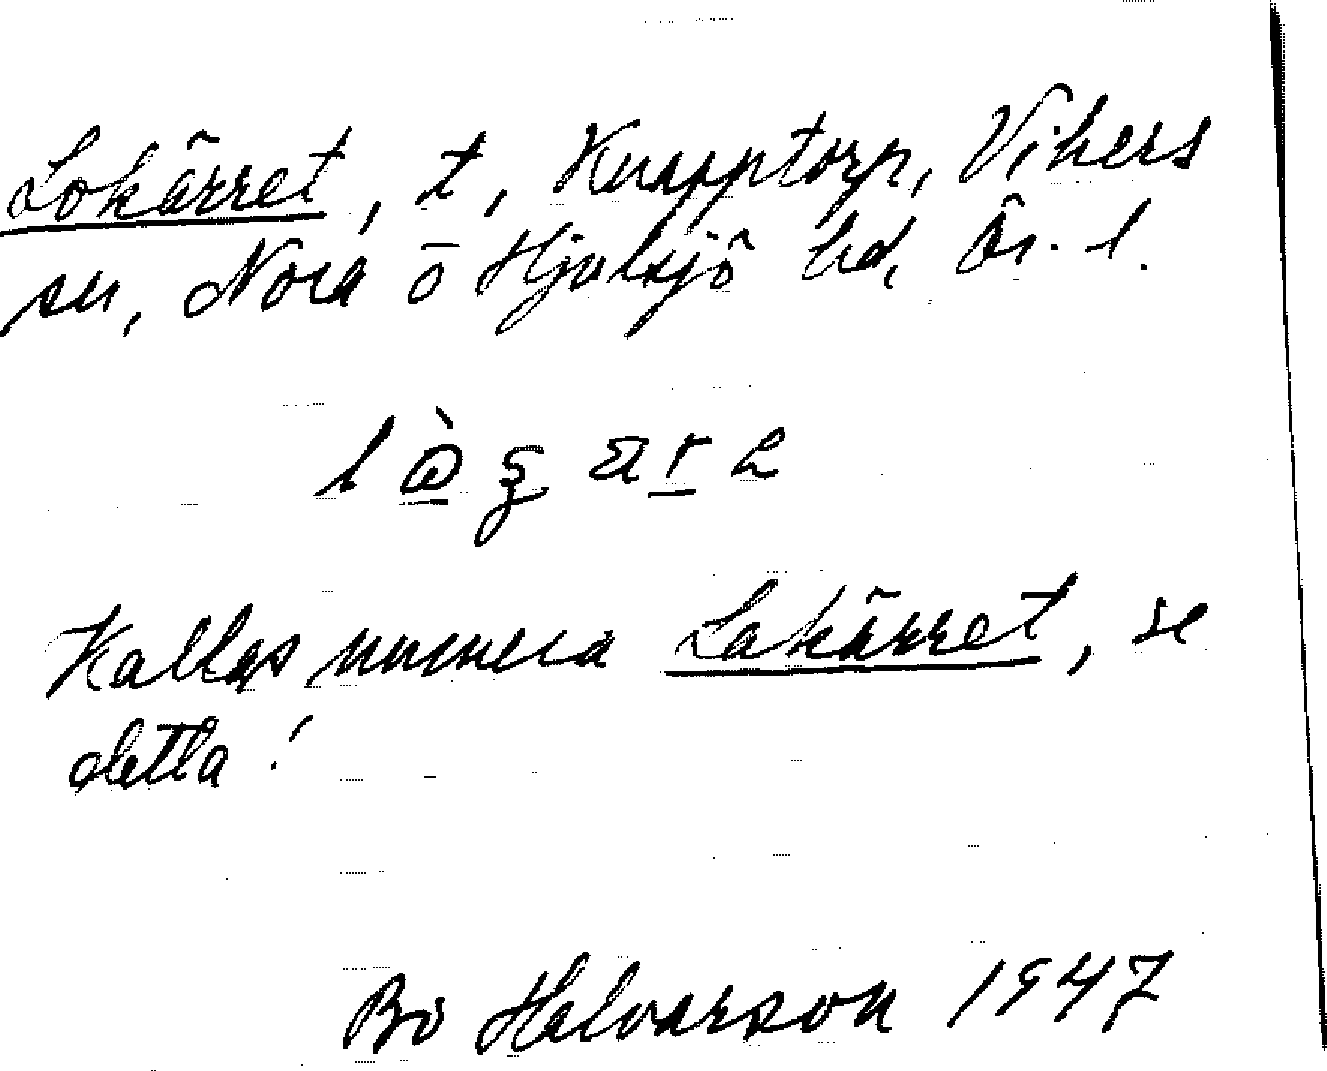 Lokärret, t, Knapptorp, Vikers
sn, Nora o Hjulsjö hd, Ör. l.
Kallas numera Lakärret, se
detta!
Bo Halvarson 1947